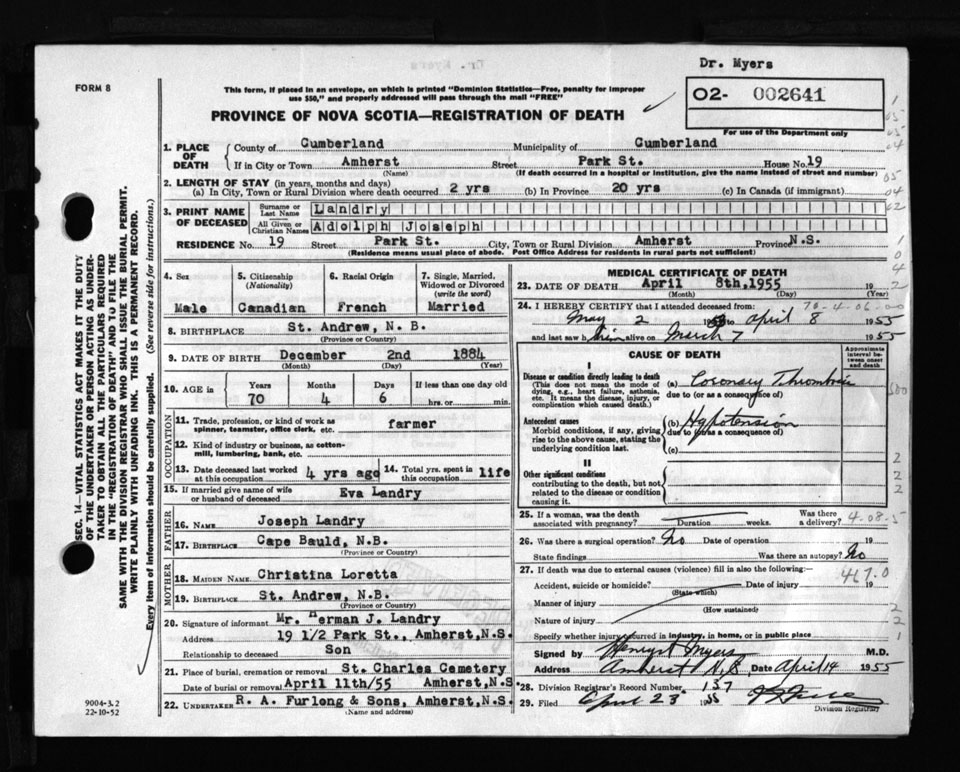 Dr. Myers
FORM 8
This form, if placed in an envelope, on which is printed "Dominion Statistics—Free, penalty for improper
use $50," and properly addressed will pass through the mail "FREE"
O2- 002641
For use of the Department only
PROVINCE OF NOVA SCOTIA—REGISTRATION OF DEATH
1. PLACE OF DEATH County of Cumberland Municipality of Cumberland
If in City or Town Amherst Street Park St. House No. 19
(Name) (If death occurred in a hospital or institution, give the name instead of street and number)
2. LENGTH OF STAY (in years, months and days)
(a) In City, Town or Rural Division where death occurred 2 yrs (b) In Province 20 yrs (c) In Canada (if immigrant)
3. PRINT NAME OF DECEASED Surname or Last Name Landry
All Given or Christian Names Adolph Joseph
RESIDENCE No. 19 Street Park St. City, Town or Rural Division Amherst Province N.S.
(Residence means usual place of abode. Post Office Address for residents in rural parts not sufficient)
4. Sex Male
5. Citizenship (Nationality) Canadian
6. Racial Origin French
7. Single, Married, Widowed or Divorced (write the word) Married
8. BIRTHPLACE St. Andrew, N. B.
(Province or Country)
9. DATE OF BIRTH December 2nd 1884
(Month) (Day) (Year)
10. AGE in Years 70 Months 4 Days 6 If less than one day old hrs. or min.
OCCUPATION
11. Trade, profession, or kind of work as spinner, teamster, office clerk, etc. farmer
12. Kind of industry or business, as cotton-mill, lumbering, bank, etc.
13. Date deceased last worked at this occupation 4 yrs ago 14. Total yrs. spent in this occupation life
15. If married give name of wife or husband of deceased Eva Landry
FATHER
16. NAME Joseph Landry
17. BIRTHPLACE Cape Bauld, N.B.
(Province or Country)
MOTHER
18. MAIDEN NAME Christina Loretta
19. BIRTHPLACE St. Andrew, N.B.
(Province or Country)
20. Signature of informant Mr. Herman J. Landry
Address 19 1/2 Park St., Amherst, N.S.
Relationship to deceased Son
21. Place of burial, cremation or removal St. Charles Cemetery
Date of burial or removal April 11th/55 Amherst, N.S.
22. UNDERTAKER R. A. Furlong & Sons, Amherst, N.S.
(Name and address)
MEDICAL CERTIFICATE OF DEATH
23. DATE OF DEATH April 8th, 1955 19
(Month) (Day) (Year)
24. I HEREBY CERTIFY that I attended deceased from:
May 2 19 to April 8 1955
and last saw him alive on March 7 1955
CAUSE OF DEATH
Approximate interval between onset and death
I
Disease or condition directly leading to death
(This does not mean the mode of dying, e.g., heart failure, asthenia, etc. It means the disease, injury, or complication which caused death.)
(a) Coronary Thrombosis
due to (or as a consequence of)
Antecedent causes
Morbid conditions, if any, giving rise to the above cause, stating the underlying condition last.
(b) Hypotension
due to (or as a consequence of)
(c)
II
Other significant conditions
contributing to the death, but not related to the disease or condition causing it.
25. If a woman, was the death associated with pregnancy? Duration weeks. Was there a delivery?
4-08-5
26. Was there a surgical operation? No Date of operation 19
State findings Was there an autopsy? No
27. If death was due to external causes (violence) fill in also the following:
467.0
Accident, suicide or homicide? Date of injury 19
(State which)
Manner of injury
(How sustained)
Nature of injury
Specify whether injury occurred in industry, in home, or in public place
Signed by Henry Myers M.D.
Address Amherst N.S. Date April 14 1955
28. Division Registrar's Record Number 137
29. Filed April 23 1955
Division Registrar
SEC. 14—VITAL STATISTICS ACT MAKES IT THE DUTY
OF THE UNDERTAKER OR PERSON ACTING AS UNDER-
TAKER TO OBTAIN ALL THE PARTICULARS REQUIRED
IN THE "REGISTRATION OF DEATH" AND TO FILE THE
SAME WITH THE DIVISION REGISTRAR WHO SHALL ISSUE THE BURIAL PERMIT.
WRITE PLAINLY WITH UNFADING INK. THIS IS A PERMANENT RECORD.
Every item of information should be carefully supplied. (See reverse side for instructions.)
9004-3.2
22-10-52